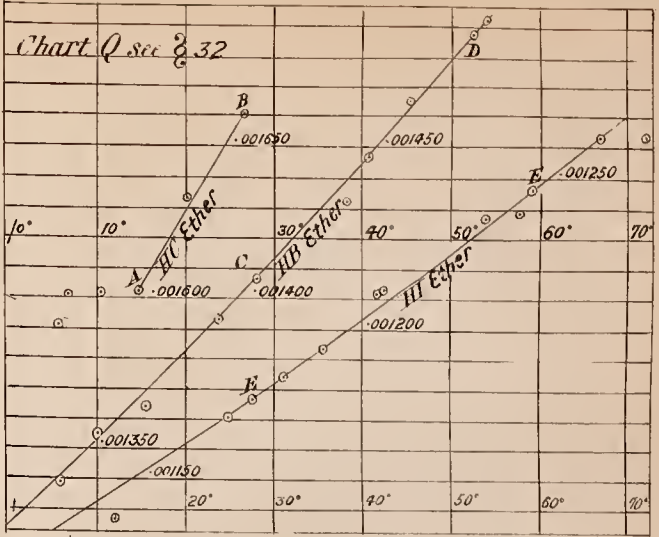 Chart Q see § 32
B
D
.001650
.001450
E
.001250
10° 10° 30° 40° 50° 60° 70°
HC Ether
HB Ether
HI Ether
C
A
.001600
.001400
.001200
E
.001350
.001150
20° 30° 40° 50° 60° 70°